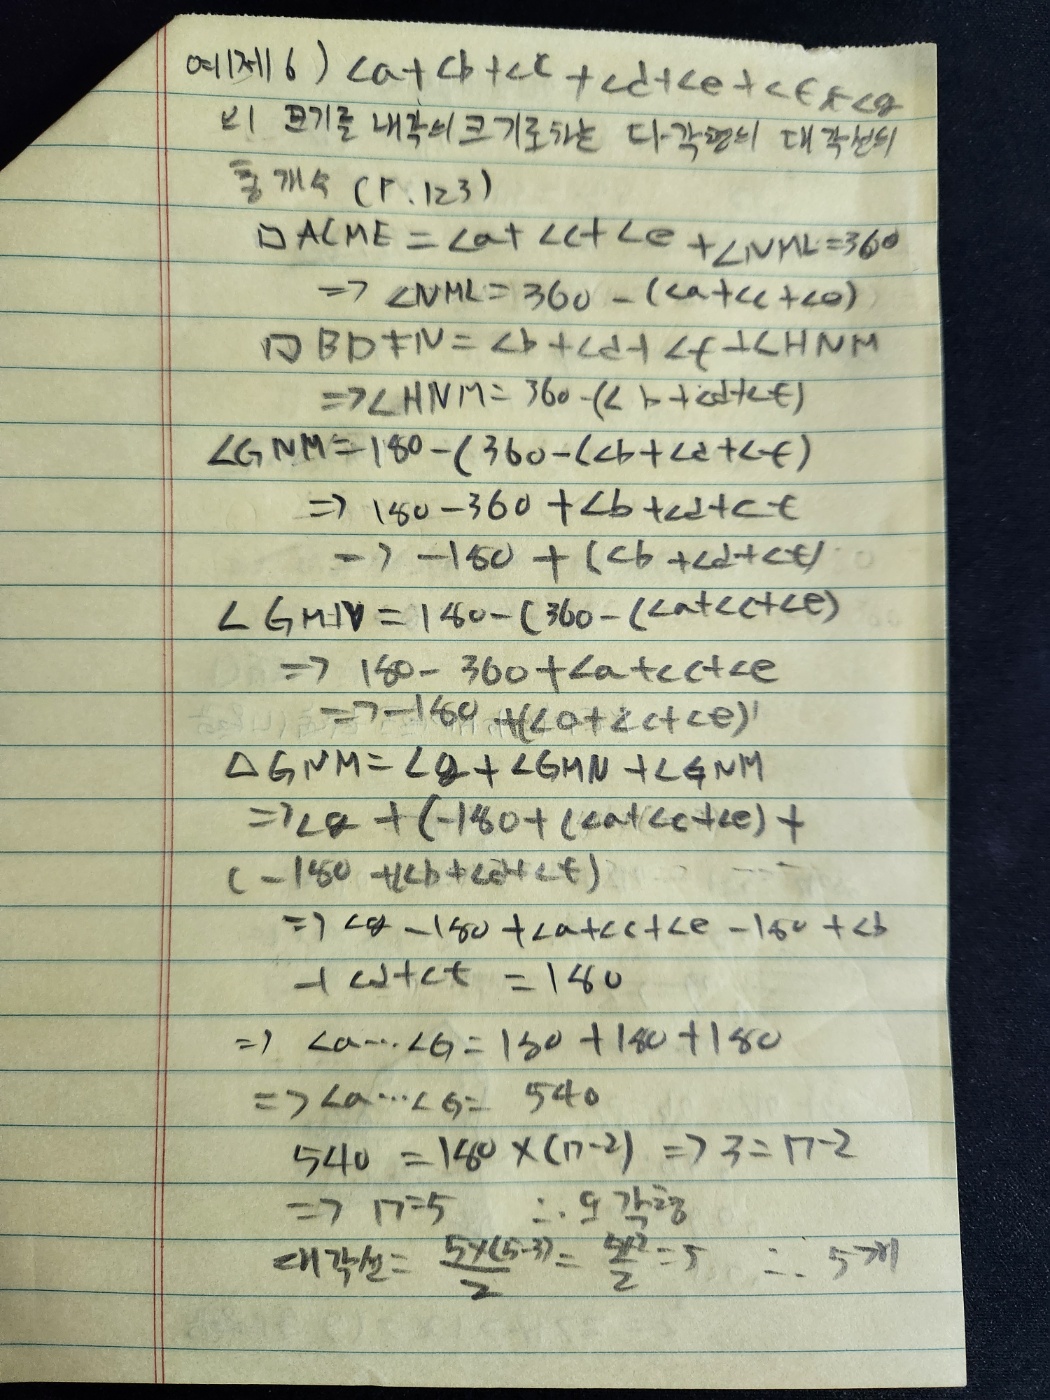 예제6) <a+<b+<c+<d+<e+<f+<g
의 크기를 내각의 크기로 하는 다각형의 대각선의
총 개수 (P.123)
□ACME = <a+<c+<e+<NML=360
=> <NML=360-(<a+<c+<e)
□BDFN=<b+<d+<f+<HNM
=> <HNM=360-(<b+<d+<f)
<GNM=180-(360-(<b+<d+<f)
=> 180-360+<b+<d+<f
=> -180+(<b+<d+<f)
<GMN=180-(360-(<a+<c+<e)
=> 180-360+<a+<c+<e
=> -180+(<a+<c+<e)
△GNM=<g+<GMN+<GNM
=> <g+(-180+(<a+<c+<e)+
(-180+(<b+<d+<f)
=> <g-180+<a+<c+<e-180+<b
+<d+<f=180
=> <a…<G=180+180+180
=> <a…<G=540
540=180×(n-2) => 3=n-2
=> n=5 ∴오각형
대각선= 5×(5-3)/2 = 5×2/2 =5 ∴5개